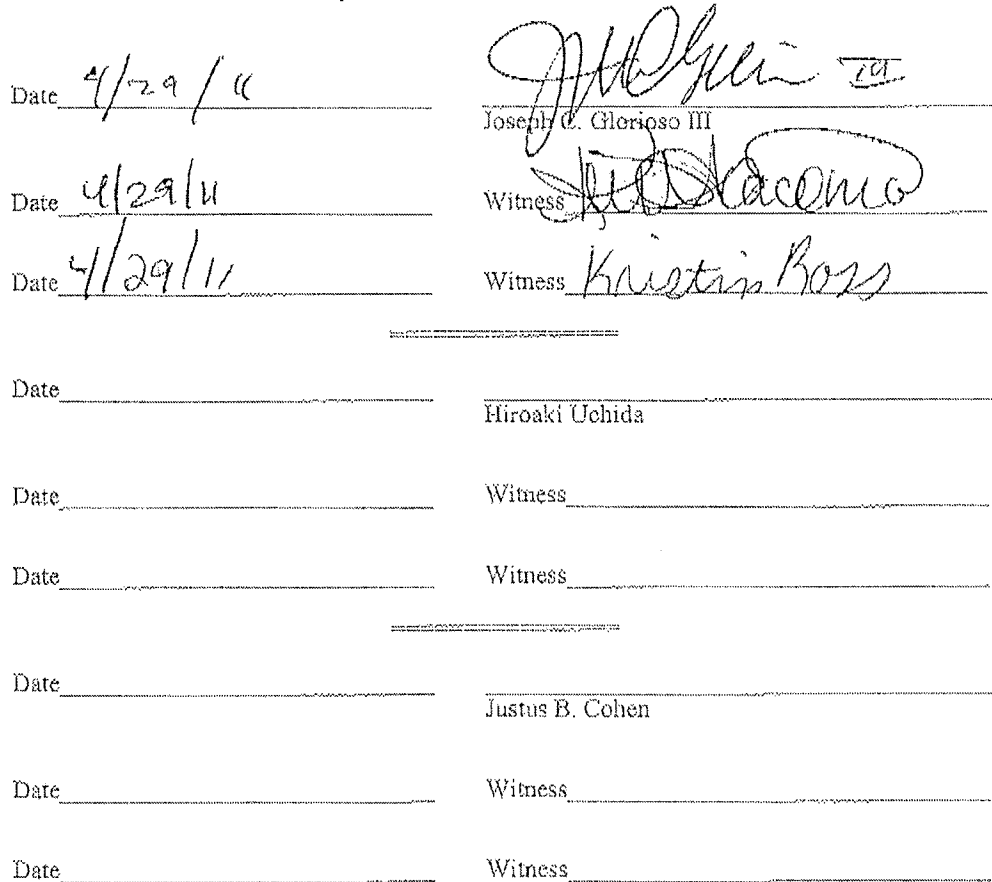 Date 4/29/11
Joseph C. Glorioso III
Date 4/29/11 Witness
Date 4/29/11 Witness Kristin Ross
Date
Hiroaki Uchida
Date Witness
Date Witness
Date
Justus B. Cohen
Date Witness
Date Witness